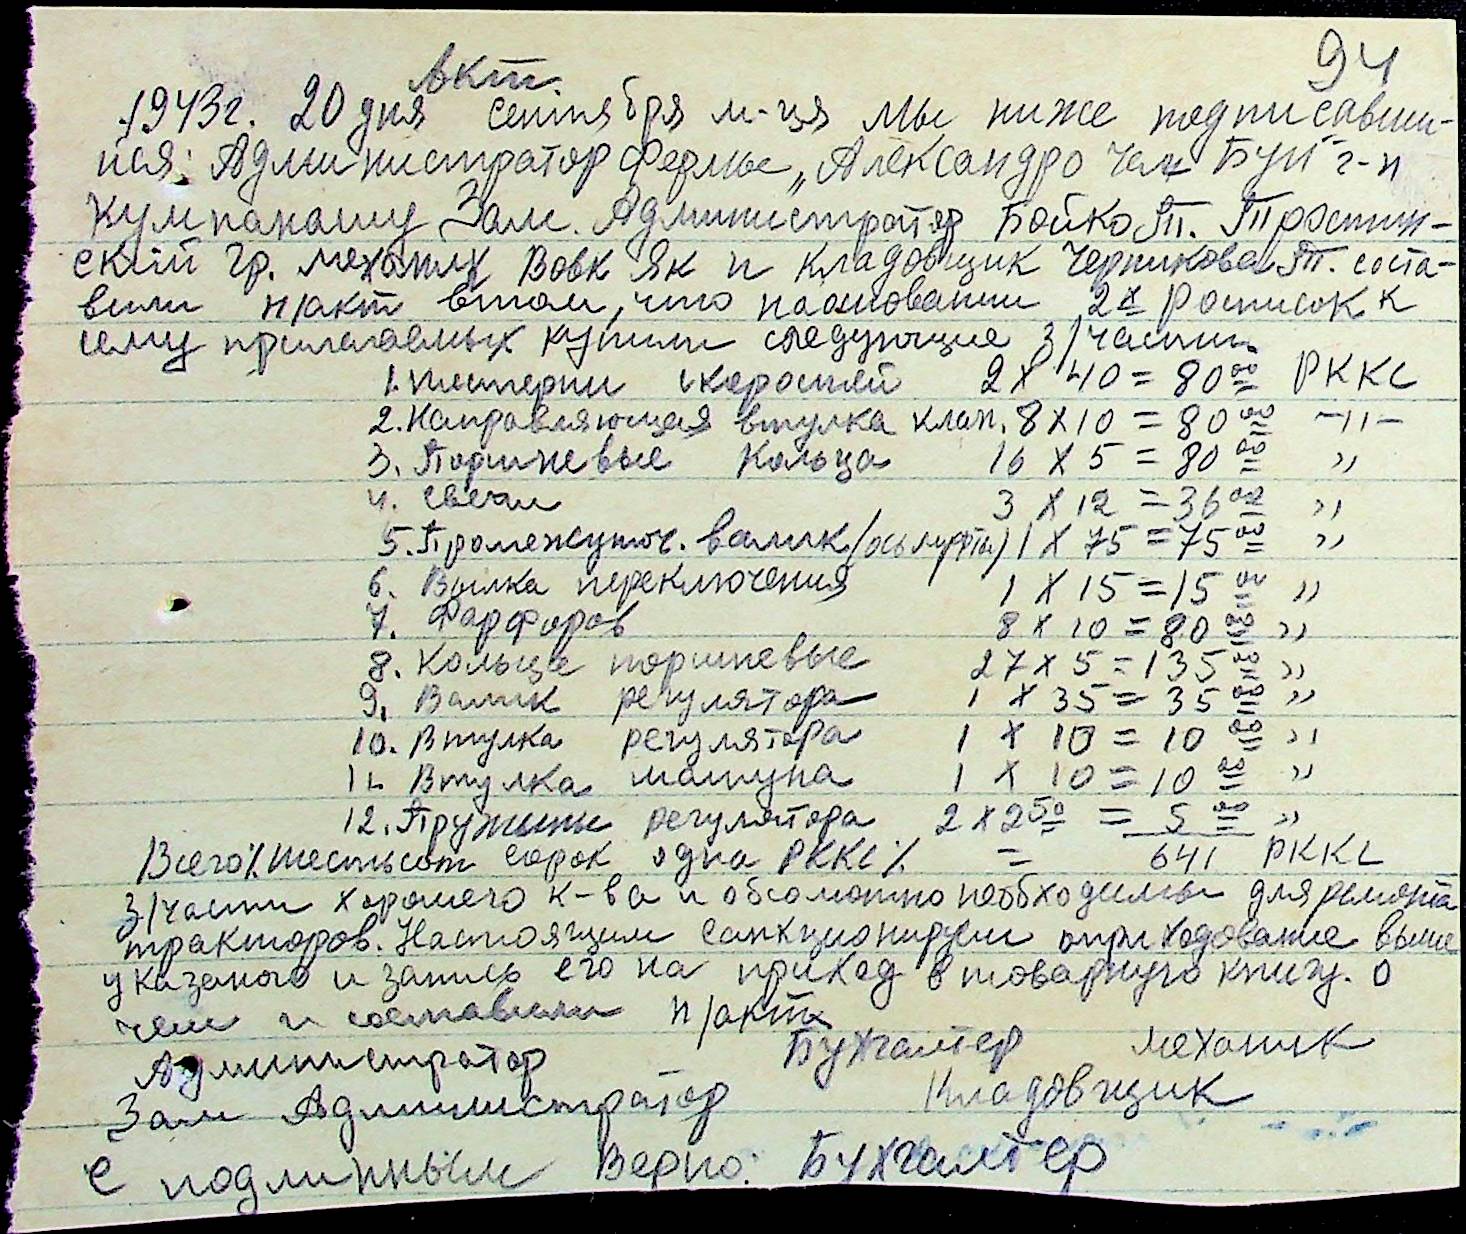 94
Акт.
1943г. 20 дня сентября м-ця Мы ниже подписавши-
ися: Администратор фермы „Александро чел Бун" г-н
Кумпанашу Зам. Администратор Бойко Т. Тростин-
ский Гр. механик Вовк Як и кладовщик Черникова Т. соста-
вили н/акт втом, что наосновании 2х Росписок к
сему прилагаемых купили следующие з/части.
1. Шестерни скоростей 2 х 40 = 80 00 РККС
2. Направляющая втулка клап. 8 х 10 = 80 00 -"-
3. Поршневые Кольца 16 х 5 = 80 00 "
4. Свечи 3 х 12 = 36 00 "
5. Промежуточ. валик /ось муфты/ 1 х 75 = 75 00 "
6. Вилка переключения 1 х 15 = 15 00 "
7. Фарфоров 8 х 10 = 80 00 "
8. Кольца поршневые 27 х 5 = 135 00 "
9. Валик регулятора 1 х 35 = 35 00 "
10. Втулка регулятора 1 х 10 = 10 00 "
11. Втулка шатуна 1 х 10 = 10 00 "
12. Пружины регулятора 2 х 2 50 = 5 00 "
Всего % Шестьсот сорок одна РККС % = 641 РККС
З/части хорошего к-ва и обсолютно необходимы для ремонта
тракторов. Настоящим санкционируем оприходование выше
указаного и запись его на приход в товарную книгу. о
чем и составили н/акт
Администратор Бухгалтер механик
Зам Администратор Кладовщик
С подлинным Верно: Бухгалтер